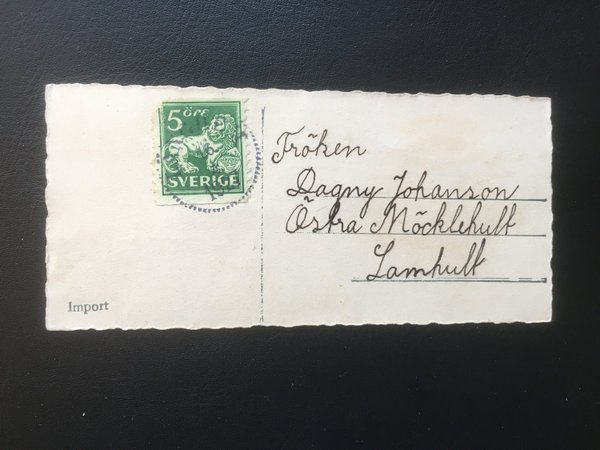 5 ÖRE
SVERIGE
Fröken
Dagny Johanson
Östra Möcklehult
Lamhult
Import